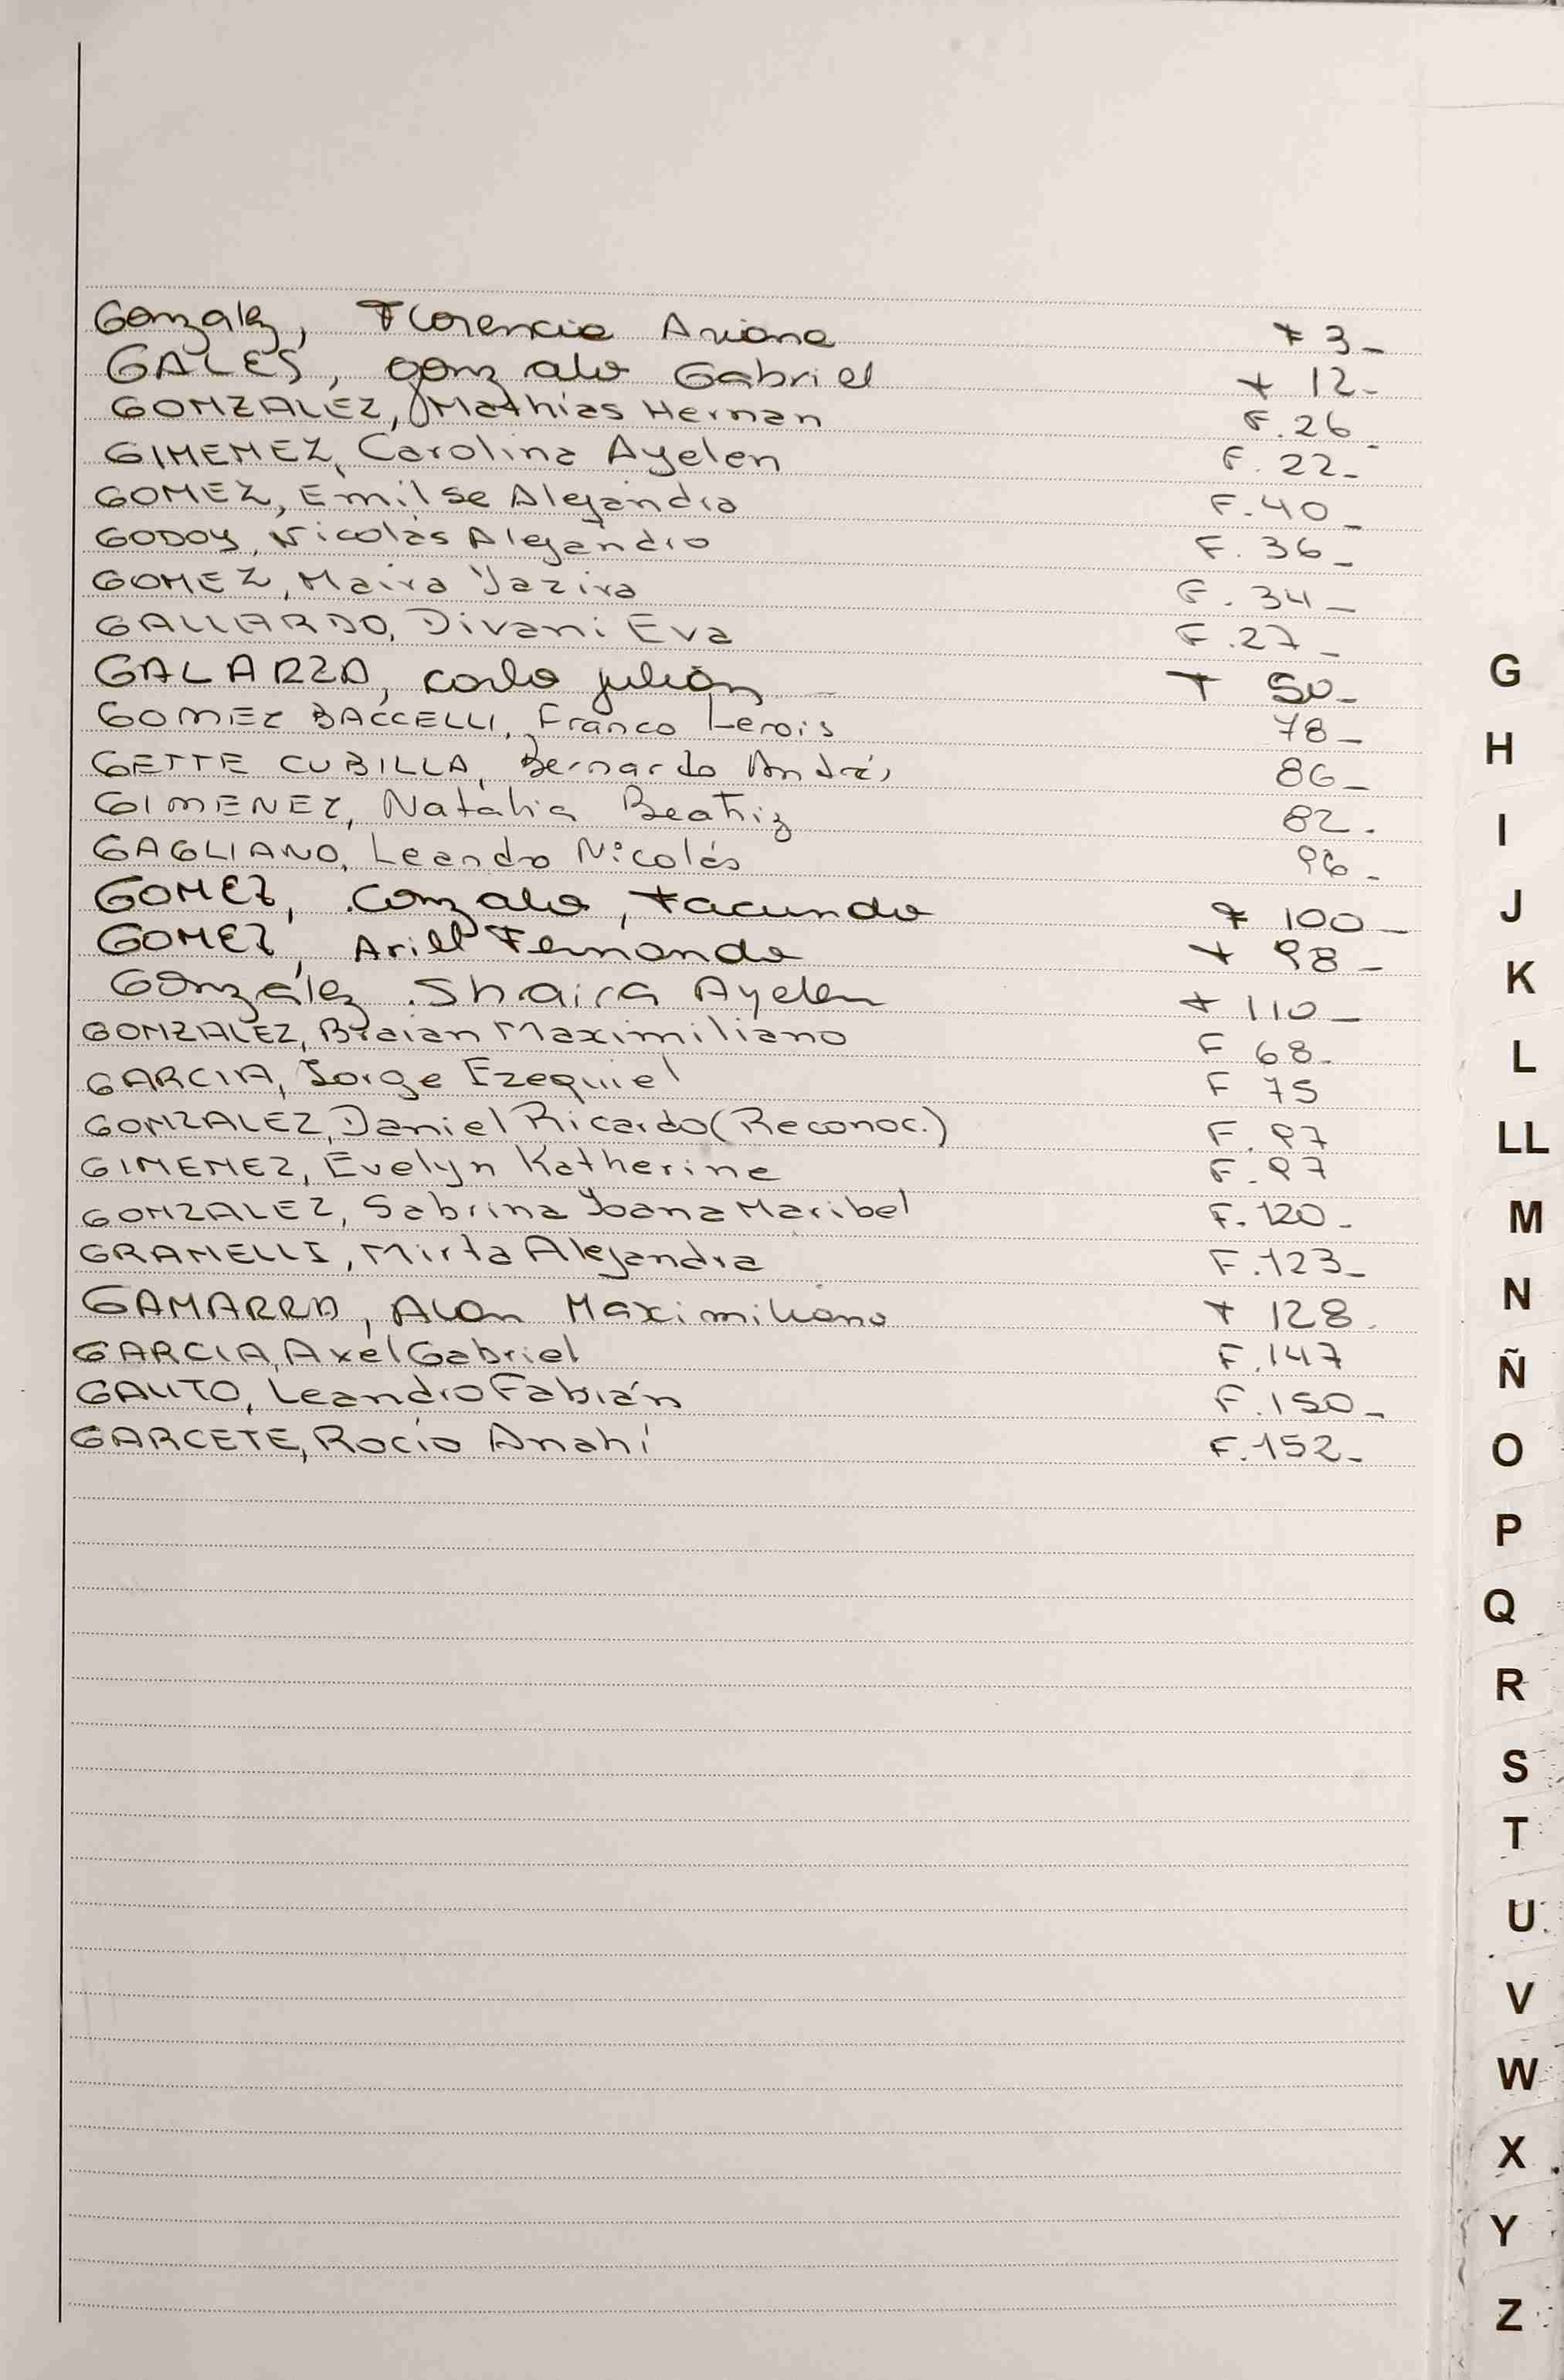 Gonzalez, Florencia Ariana F 3-
GALES, gonzalo Gabriel F 12-
GONZALEZ, Mathías Hernan F.26-
GIMENEZ, Carolina Ayelen F.22-
GOMEZ, Emilse Alejandra F.40-
GODOY, Nicolás Alejandro F.36-
GOMEZ, Maira Yazira F.34-
GALLARDO, Divani Eva F.27-
GALARZA, carlo julián - F 50-
GOMEZ BACCELLI, Franco 78-
GETTE CUBILLA, Bernardo Andrés 86-
GIMENEZ, Natalia Beatriz 82.
GAGLIANO, Leandro Nicolás 96-
GOMEZ, Gonzalo, Facundo F 100-
GOMEZ, Ariel Fernando F 98-
González, Shaira Ayelen F 110-
GONZALEZ, Braian Maximiliano F 68-
GARCIA, Jorge Ezequiel F 75
GONZALEZ, Daniel Ricardo (Reconoc.) F.97
GIMENEZ, Evelyn Katherine F.97
GONZALEZ, Sabrina Yoana Maribel F.120-
GRANELLI, Mirta Alejandra F.123-
GAMARRA, Alan Maximiliano F 128.
GARCIA, Axel Gabriel F.147
GAUTO, Leandro Fabián F.150-
GARCETE, Rocío Anahí F.152-
G
H
I
J
K
L
LL
M
N
Ñ
O
P
Q
R
S
T
U
V
W
X
Y
Z